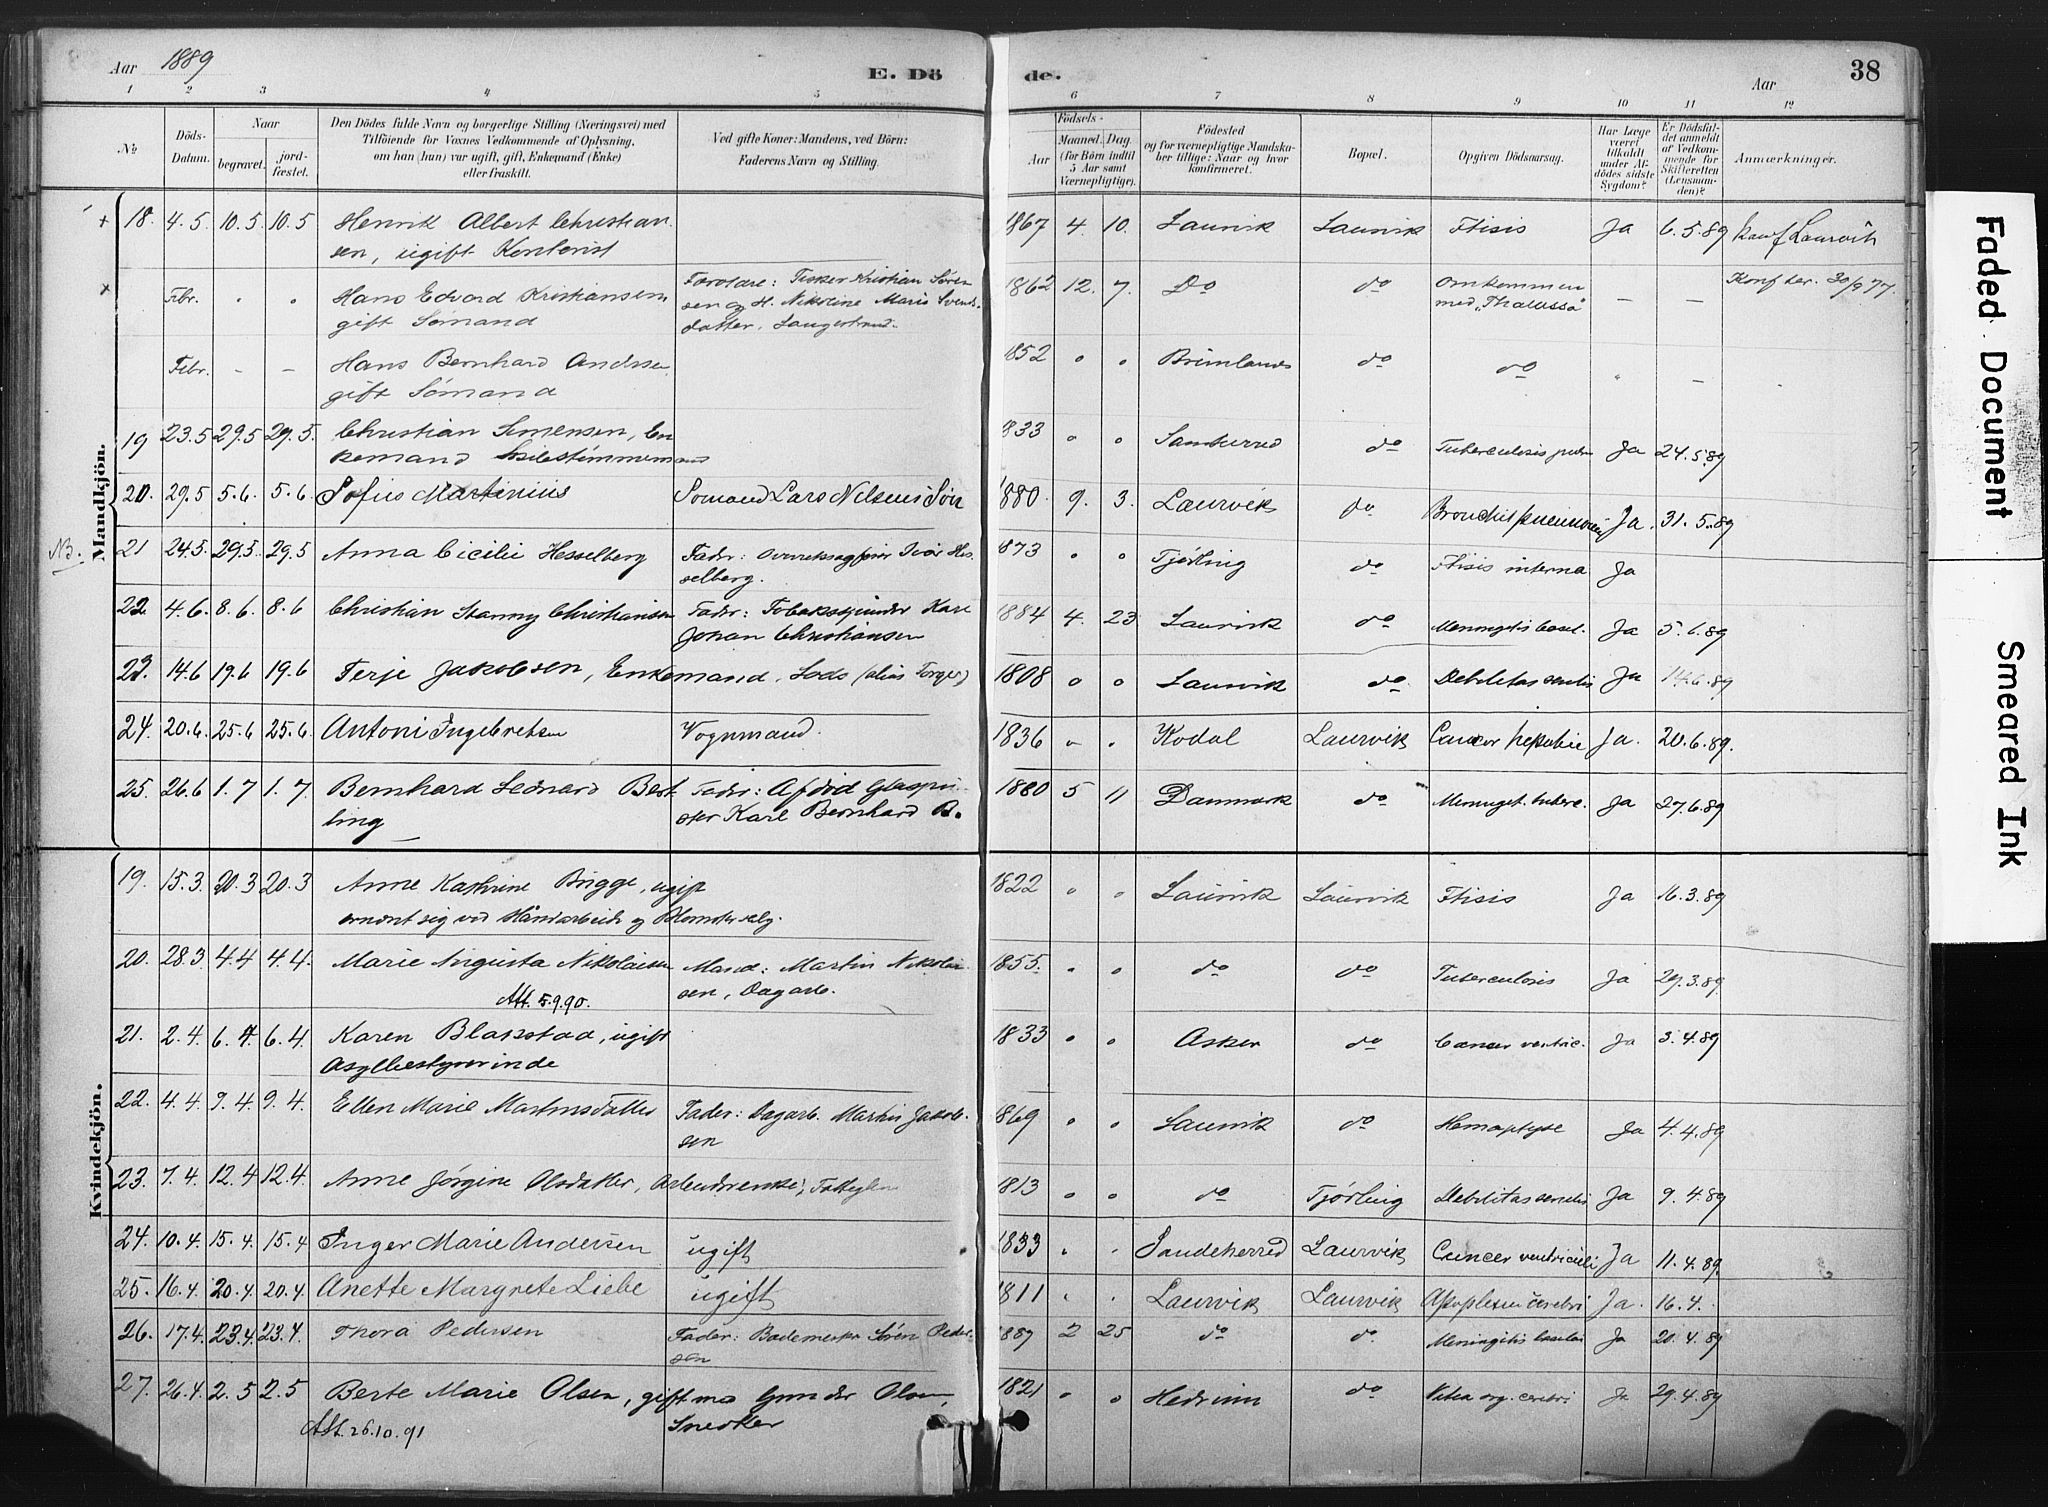 Aar 1889
E. Dö
de.
Aar
38
1 2 3 4 5 6 7 8 9 10 11 12
No
Döds-Datum.
Naar
begravet.
jord-fæstet.
Den Dödes fulde Navn og borgerlige Stilling (Næringsvei) med
Tilföiende for Voxnes Vedkommende af Oplysning,
om han (hun) var ugift, gift, Enkemand (Enke)
eller fraskilt.
Ved gifte Koner: Mandens, ved Börn:
Faderens Navn og Stilling.
Födsels-
Aar
Maaned.
Dag.
(for Börn indtil
5 Aar samt
Værnepligtige).
Födested
og for værnepligtige Mandska-
ber tillige: Naar og hvor
konfirmeret.
Bopæl.
Opgiven Dödsaarsag.
Har Læge
været
tilkaldt
under Af-
dödes sidste
Sygdom?
Er Dödsfal-
det anmeldt
af Vedkom-
mende for
Skifteretten
(Lensman-
den)?
Anmærkninger.
Mandkjön.
18. 4.5 10.5 10.5 Henrik Albert Christian- 1867 4. 10. Laurvik Laurvik Ftisis Ja 6.5.89
sen, ugift Kontorist
Febr. Hans Edvard Kristiansen Forældre: Fisker Kristian Søren- 1862 12. 7. Do do omkommen — —
gift Sømand sen og H. Nikoline Marie Svends- med „Thalassa" Konf. 30/9 77.
datter, Langestrand.
Febr. — — Hans Bernhard Andrsen 1852 o o do do —
gift Sømand
19 23.5 29.5 29.5. Christian Simensen, En- 1833 o o Sandherred do Tuberculosis pulm Ja 24.5.89
kemand
20. 29.5 5.6. 5.6 Sofius Martinius Sømand Lars Nilsens Søn 1880. 9. 3. Laurvik do Ja. 31.5.89
NB. 21 24.5 29.5 29.5 Anna Cicilie Hesselberg Fader: Overretssagfører Iver Hes- 1873 o o Tjølling do Ftisis interna Ja
selberg.
22 4.6. 8.6. 8.6 Christian Stanny Christiansen Fader: Tobaksspinder Karl 1884 4. 23. Laurvik do Meningitis basil. Ja 5.6.89
Johan Christiansen
23. 14.6 19.6 19.6 Terje Jakobsen, Enkemand, Lods (alias Torger) 1808 o o Laurvik do. Debilitas senilis Ja 14.6.89
24. 20.6. 25.6 25.6. Antoni Ingebretsen Vognmand. 1836 Kodal Laurvik Cancer hepatic Ja. 20.6.89.
25. 26.6 1.7 1.7. Bernhard Leonard Best- Fader: Afdød Glaspu- 1880 5 11 Danmark do Meninget. tuberc. Ja 27.6.89
ling ster Karl Bernhard B.
Kvindekjön.
19. 15.3 20.3 20.3 Anne Kathrine Brygge, ugift 1822 o o Laurvik Laurvik Ftisis Ja 16.3.89
ernært sig ved Håndarbeide og Blomstersalg.
20. 28.3 4.4 4.4. Marie Augusta Nikolaisen Mand: Martin Nikolai- 1855. o o do do Tuberculosis Ja 29.3.89
Att. 5.9.90. sen, Dagarb.
21. 2.4. 6.4. 6.4 Karen Blakstad, ugift 1833 o o Asker do Cancer ventric. Ja 3.4.89
Asylbestyrerinde
22. 4.4. 9.4. 9.4. Ellen Marie Martinsdatter Fader: Dagarb. Martin Jakob- 1869 o o Laurvik do Hemoptyse Ja 4.4.89
sen
23. 7.4. 12.4 12.4 Anne Jørgine Olsdatter, Arbeiderenke, Fattiglem 1813 o o do Tjølling Debilitas senilis Ja 9.4.89
24. 10.4. 15.4. 15.4 Inger Marie Andersen ugift 1833 Sandeherred Laurvik Cancer ventriculi Ja 11.4.89.
25. 16.4. 20.4. 20.4. Anette Margrete Liebe ugift 1811 Laurvik Laurvik Apoplexia cerebri Ja. 16.4.
26. 17.4. 23.4. 23.4. Thora Pedersen Fader: Bademester Søren Peder- 1889 2 25 do do. Meningitis basilar Ja 20.4.89
sen
27. 26.4. 2.5 2.5 Berte Marie Olsen, gift med Gunder Olsen, 1821 o o Hedrum do Vitium org. cerebri Ja 29.4.89
Att. 26.10.91 Snedker
Faded Document
Smeared Ink